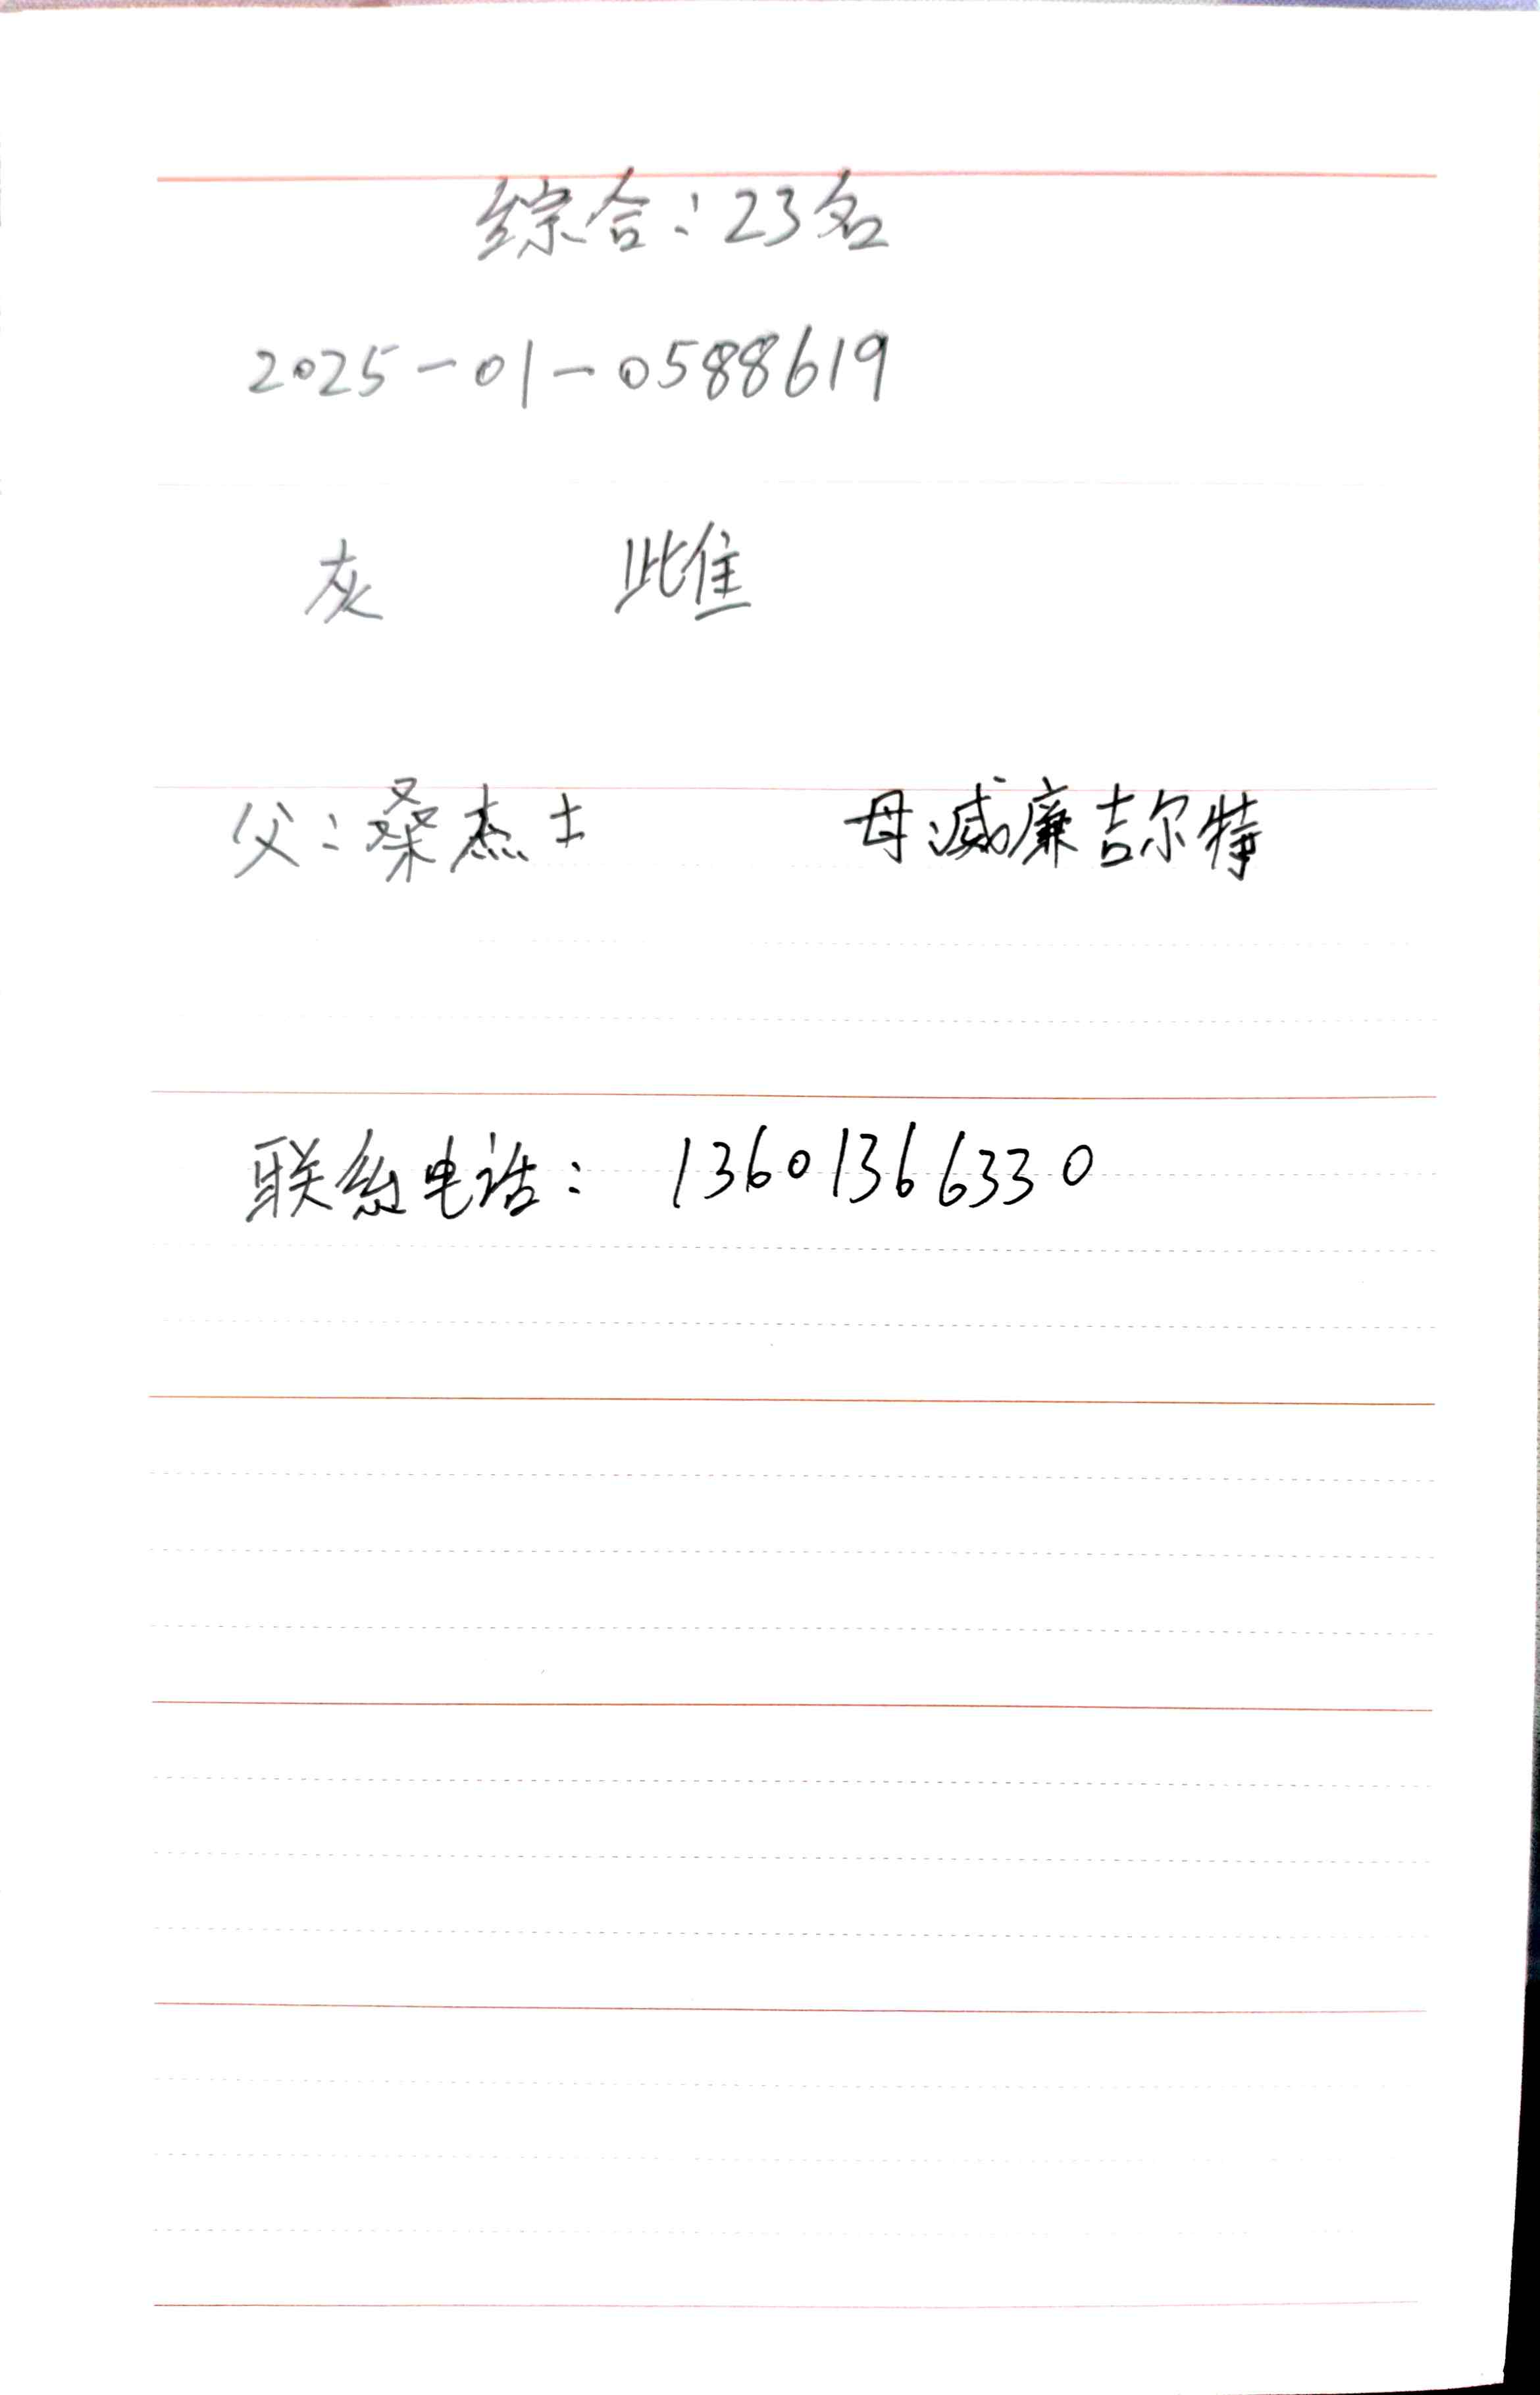 综合:23名
2025-01-0588619
灰 雌
父:桑杰士 母:威廉吉尔特
联系电话: 13601366330